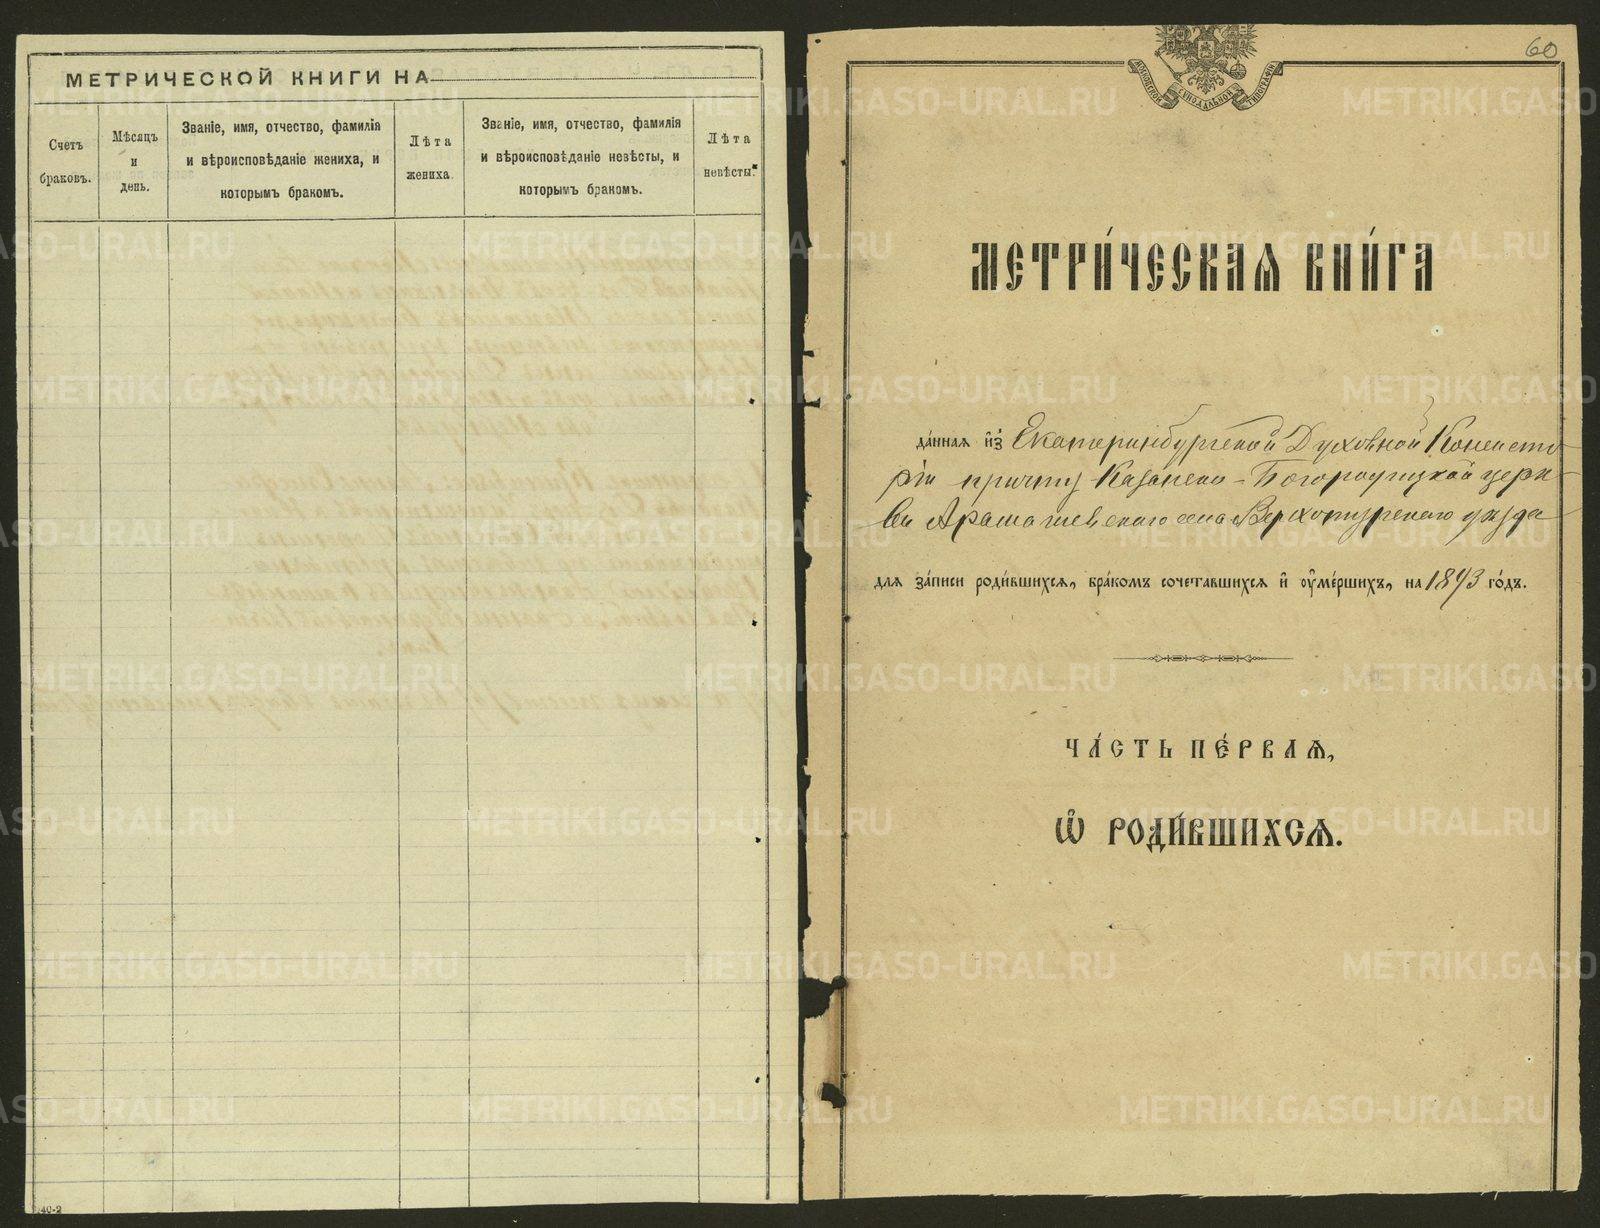 МЕТРИЧЕСКОЙ КНИГИ НА
Счетъ
браковъ.
Мѣсяцъ
и
день.
Званіе, имя, отчество, фамилія
и вѣроисповѣданіе жениха, и
которымъ бракомъ.
Лѣта
жениха.
Званіе, имя, отчество, фамилія
и вѣроисповѣданіе невѣсты, и
которымъ бракомъ.
Лѣта
невѣсты.
40-2
60
МОСКОВСКОЙ СѴНОДАЛЬНОЙ ТИПОГРАФІИ
МЕТРИ́ЧЕСКАѦ КНИ́ГА
да́ннаѧ и҆з̾ Екатеринбургской Духовной Консисто
ріи причту Казанско-Богородицкой церк
ви Арамашевскаго села Верхотурскаго уѣзда
длѧ за́писи роди́вшихсѧ, бра́комъ сочета́вшихсѧ и҆ ᲂу҆ме́ршихъ, на 1893 го́дъ.
ЧА́СТЬ ПЕ́РВАѦ,
Ѽ РОДИ́ВШИХСѦ.
METRIKI.GASO-URAL.RU